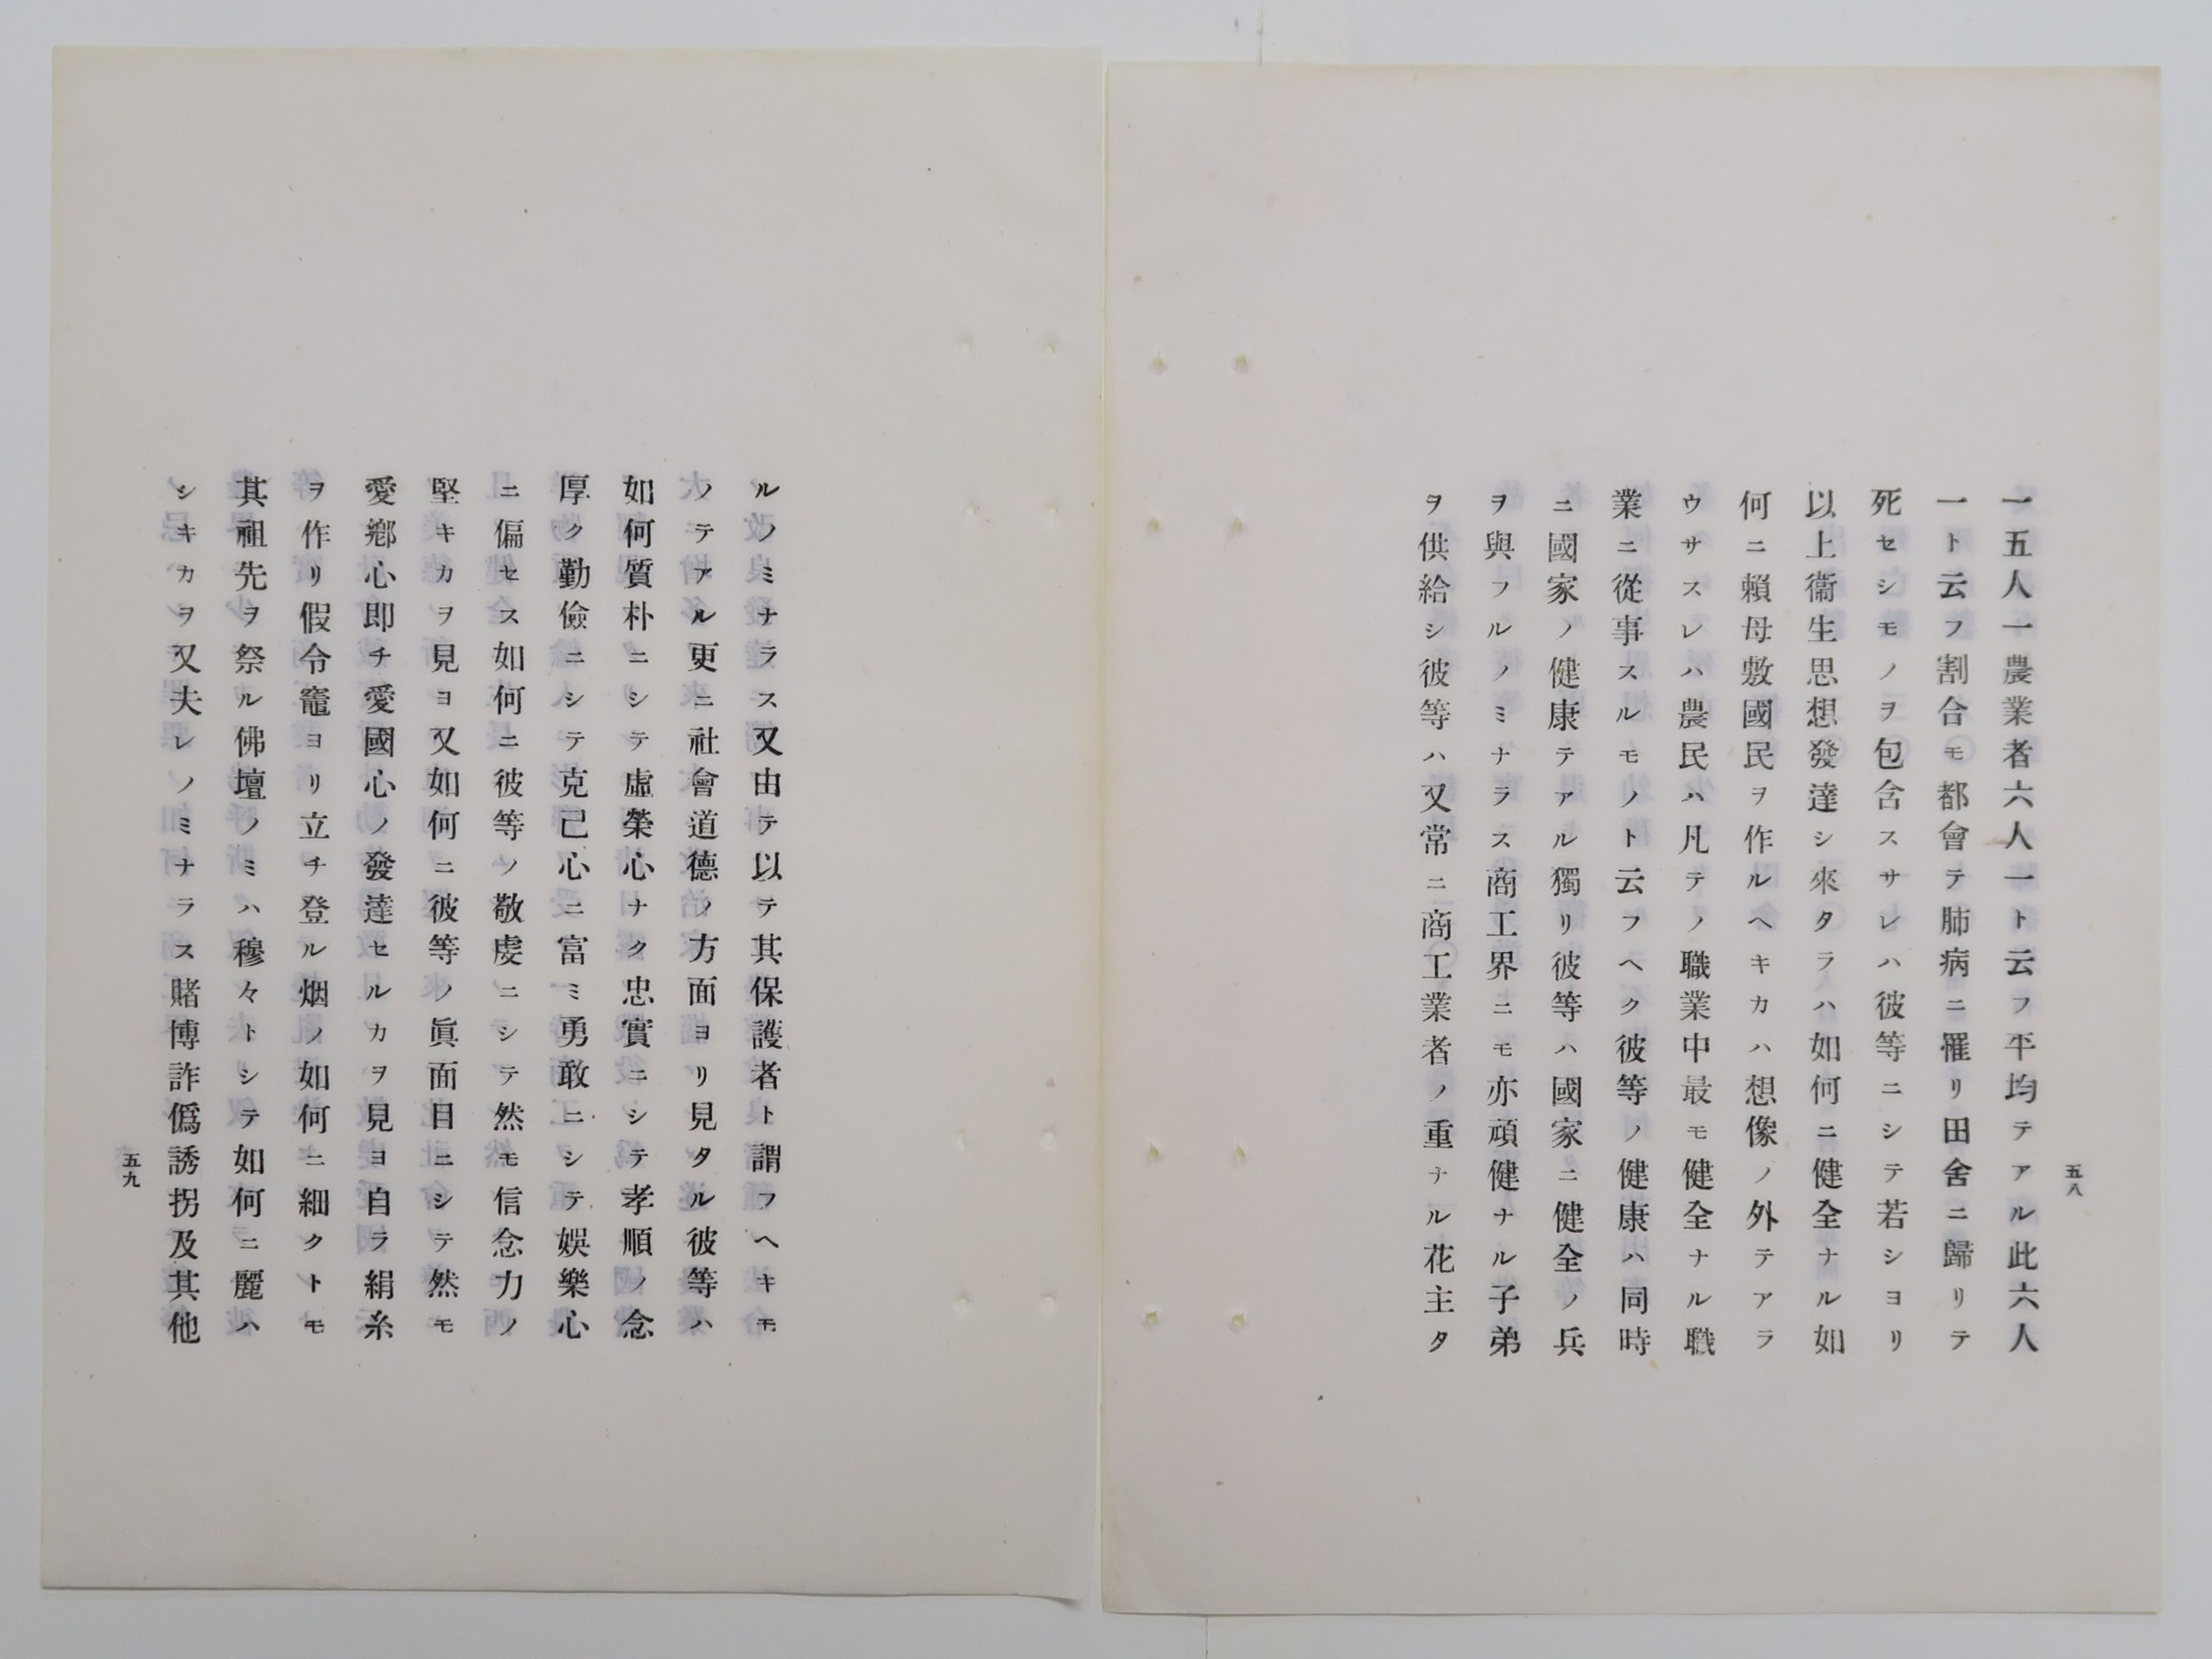 五八
一五人一農業者六人一ト云フ平均テアル此六人
一ト云フ割合モ都會テ肺病ニ罹リ田舍ニ歸リテ
死セシモノヲ包含スサレハ彼等ニシテ若シヨリ
以上衞生思想發達シ來タラハ如何ニ健全ナル如
何ニ賴母敷國民ヲ作ルヘキカハ想像ノ外テアラ
ウサスレハ農民ハ凡テノ職業中最モ健全ナル職
業ニ從事スルモノト云フヘク彼等ノ健康ハ同時
ニ國家ノ健康テアル獨リ彼等ハ國家ニ健全ノ兵
ヲ與フルノミナラス商工界ニモ亦頑健ナル子弟
ヲ供給シ彼等ハ又常ニ商工業者ノ重ナル花主タ
ルノミナラス又由テ以テ其保護者ト謂フヘキモ
ノテアル更ニ社會道德ノ方面ヨリ見タル彼等ハ
如何質朴ニシテ虛榮心ナク忠實ニシテ孝順ノ念
厚ク勤儉ニシテ克己心ニ富ミ勇敢ニシテ娯樂心
ニ偏セス如何ニ彼等ノ敬虔ニシテ然モ信念力ノ
堅キカヲ見ヨ又如何ニ彼等ノ眞面目ニシテ然モ
愛鄕心即チ愛國心ノ發達セルカヲ見ヨ自ラ絹糸
ヲ作リ假令竈ヨリ立チ登ル烟ノ如何ニ細クトモ
其祖先ヲ祭ル佛壇ノミハ穆々トシテ如何ニ麗ハ
シキカヲ又夫レノミナラス賭博詐僞誘拐及其他
五九